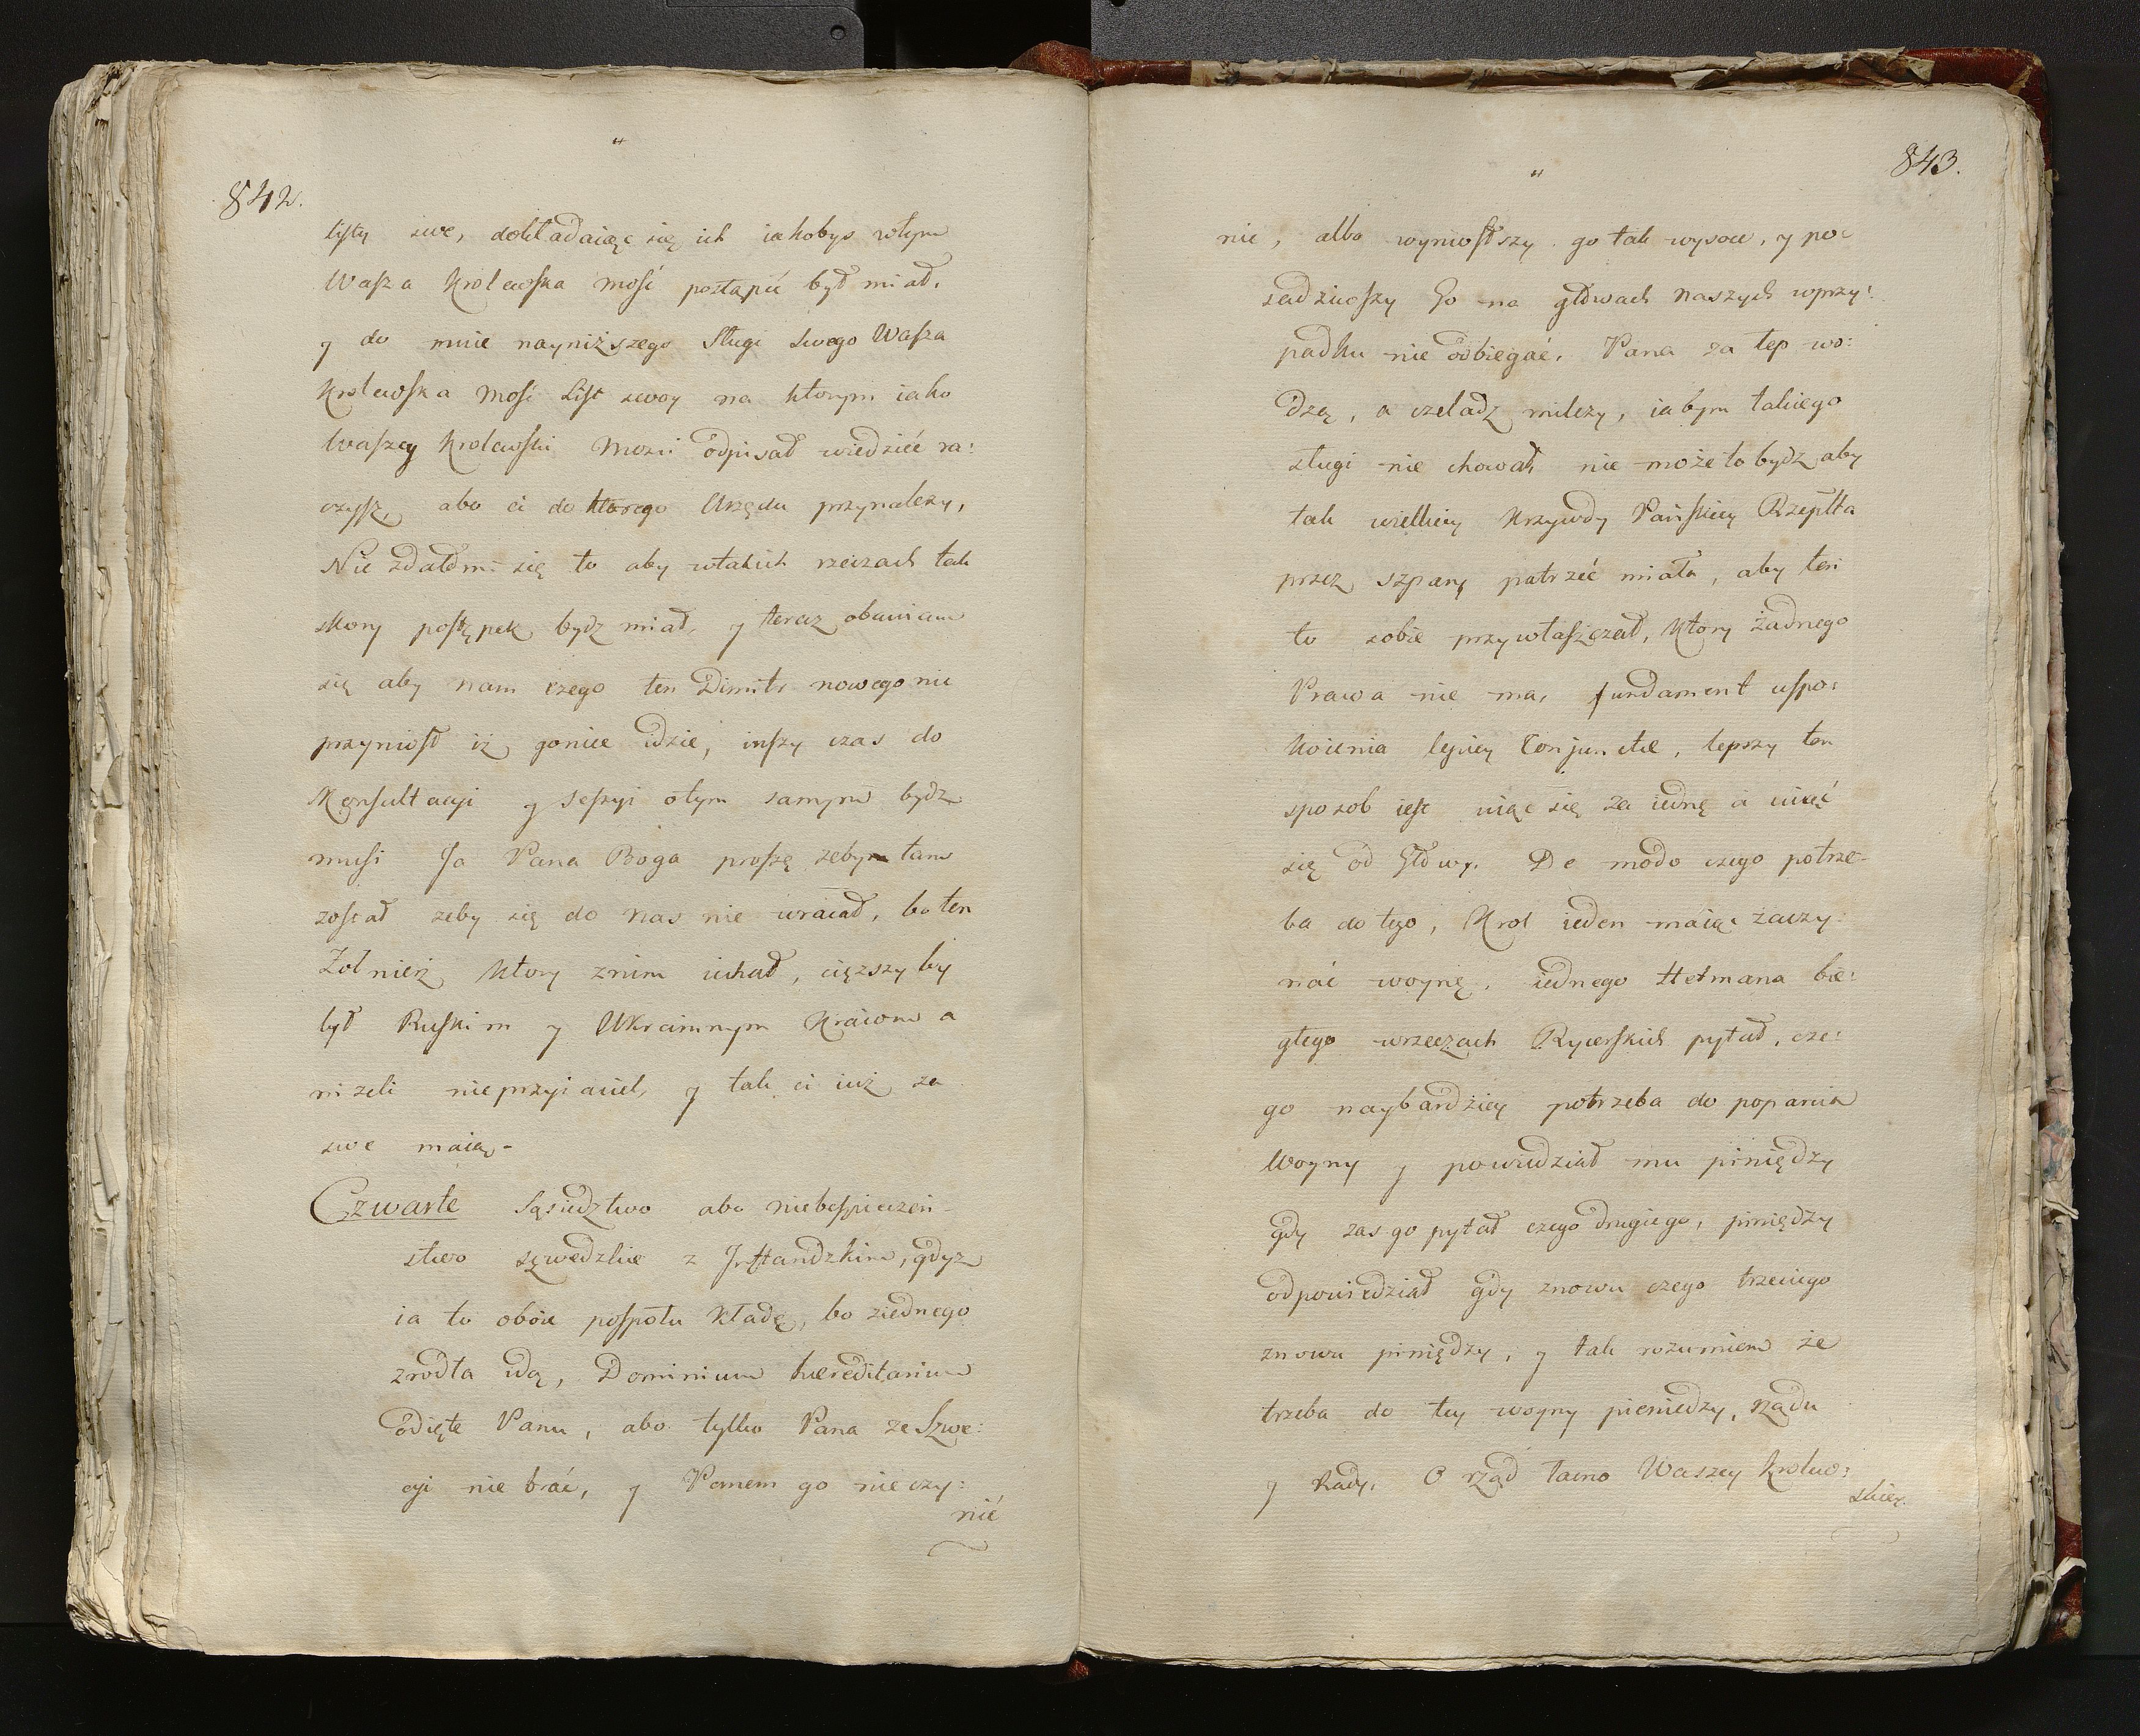 842.
listy swe, dokładaiąc się ich iakobys wtym
Wasza Krolewska Mość postąpić był miał,
y do mnie nayniższego Sługi Swego Wasza
Krolewska Mość List swoy na ktorym iako
Waszey Krolewski Mosci odpisał wiedzieć ra:
czysz, abo ći do ktorego Urzędu przynależy,
Nie zdałomi się to aby wtakich rzeczach tak
skory postępek bydz miał, y teraz obawiam
się aby nam czego ten Dimitr nowego nie
przyniosł iż goniec idzie, inszy czas do
Konsultacyi y Sessyi otym samym bydz
musi Ja Pana Boga proszę zebym tam
został zeby się do nas nie wraiał, bo ten
Zołnierz ktory znim iechał, cięzszy by
był Ruskim y Ukrainnym Kraiom a
nizeli nieprzyiaciel, y tak ći iuż za
swe maią -
Czwarte Sąsiedztwo abo niebespieczeń-
stwo szwedzkie z Inflandzkim, gdyż
ia to oboie pospołu kładę, bo ziednego
zrodła idą, Dominium hereditarium
odięte Panu, abo tylko Pana ze Szwe:
cyi nie brać, y Panem go nie czy:
nić
843.
nić, albo wyniosłszy go tak wysoce, y po:
sadziwszy Go na głowach naszych wprzy:
padku nie odbiegać. Pana za łep wo:
dzą, a czeladz milczy, iabym takiego
sługi nie chował nie może to bydz aby
tak wielkiey Krzywdy Pańskiey Rzeplta
przez szpary patrzeć miała, aby ten
to sobie przywłaszczał, ktory żadnego
Prawa nie ma, fundament uspo:
koienia lepiey Conjuncte, lepszy ten
sposob iest uiąc się za iedną a uiąć
się od Głowy. De modo czego potrze-
ba do tego, Krol ieden maiąc zaczy:
nać woynę, iednego Hetmana bie:
głego wrzeczach Rycerskich pytał, cze:
go naybardziey potrzeba do poparcia
Woyny y powiedział mu piniędzy
gdy zas go pytał czego drugiego, piniędzy
odpowiedział gdy znowu czego trzeciego
znowu piniędzy, y tak rozumiem że
trzeba do tey woyny pieniedzy, rządu
y Rady. O rząd łacno Waszey Krolew:
skiey.